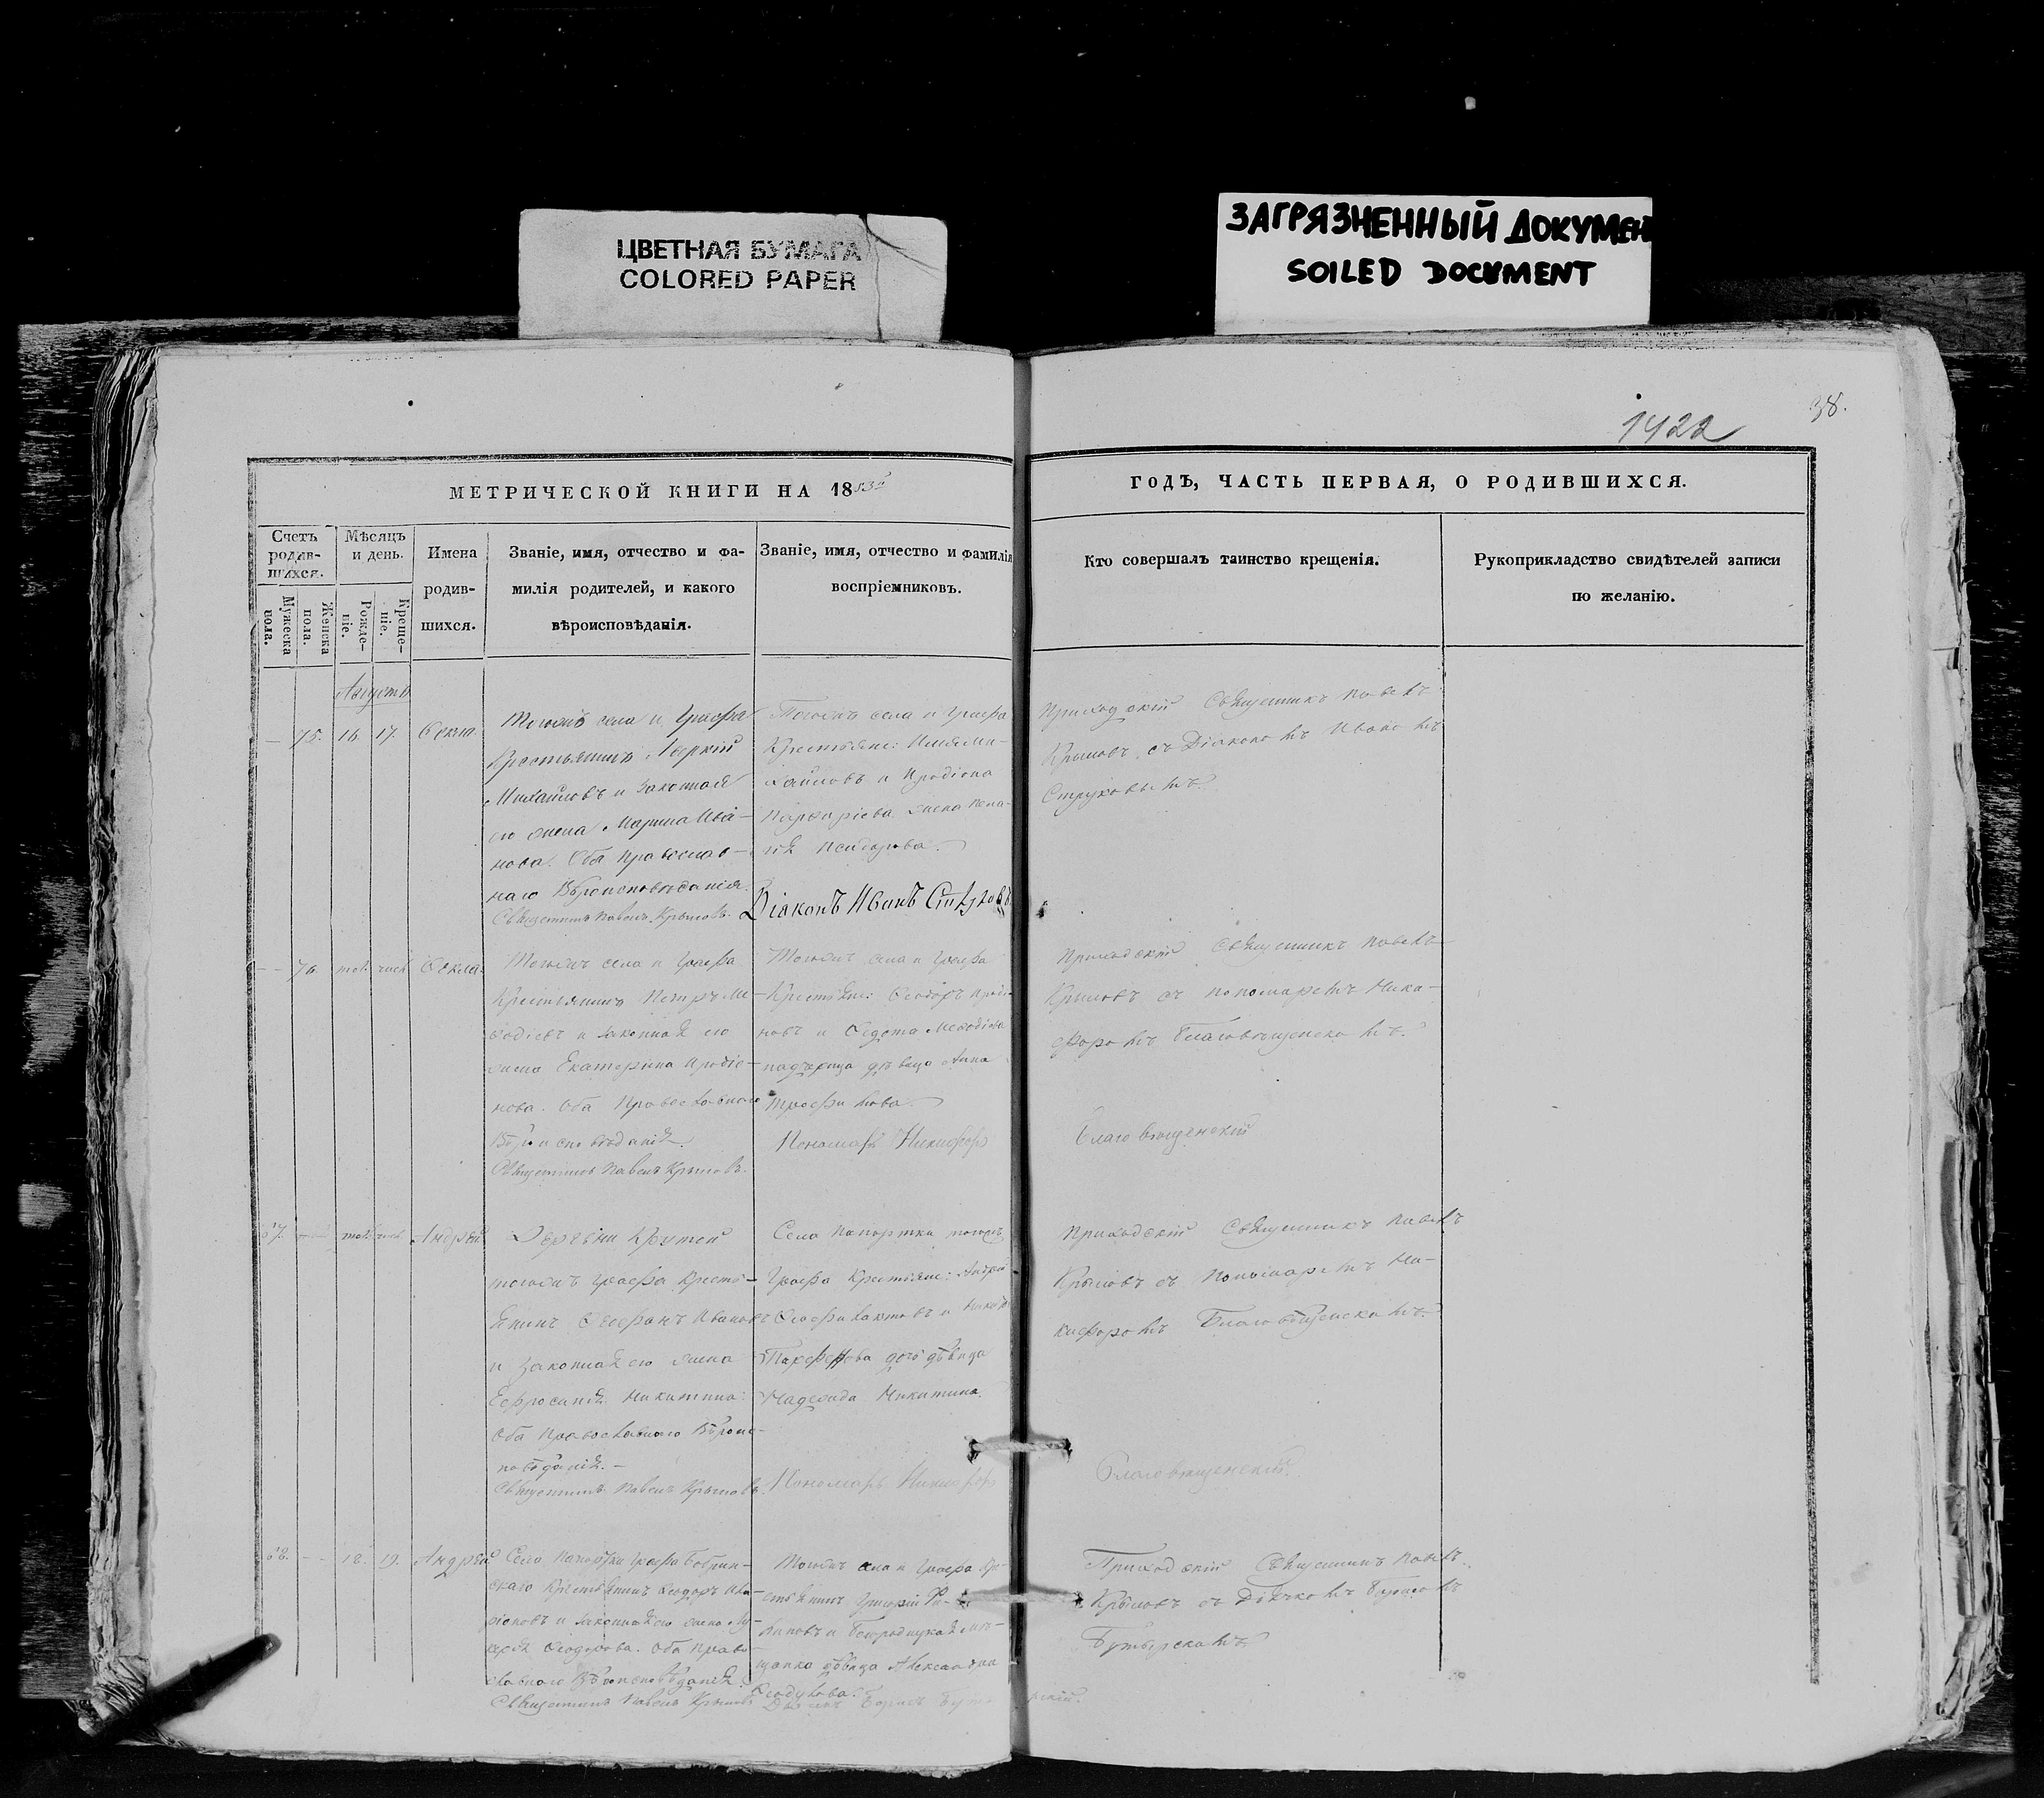 ЦВЕТНАЯ БУМАГА
COLORED PAPER
ЗАГРЯЗНЕННЫЙ ДОКУМЕН
SOILED DOCUMENT
1422
38.
МЕТРИЧЕСКОЙ КНИГИ НА 1853
ГОДЪ, ЧАСТЬ ПЕРВАЯ, О РОДИВШИХСЯ.
Счетъ родив-шихся.
Мужеска пола.
Женска пола.
Мѣсяцъ и день.
Рожде-ніе.
Креще-ніе.
Имена
родив-
шихся.
Званіе, имя, отчество и фа-
милія родителей, и какого
вѣроисповѣданія.
Званіе, имя, отчество и фамилія
воспріемниковъ.
Кто совершалъ таинство крещенія.
Рукоприкладство свидѣтелей записи
по желанію.
Августъ
75. 16. 17. Ѳекла.
Тогожъ села и Графа
Крестьянинъ Аверкій
Михайловъ и законная
его жена Марина Ива-
нова. Оба православ-
наго Вѣроисповѣданія.
Священникъ Павелъ Крыловъ.
Тогожъ села и Графа
Крестьяне:
хайловъ и Иродіона
жена Пела-
гія
Діаконъ Иванъ Струковъ.
Приходскій Священникъ Павелъ
Крыловъ съ Діакономъ Иваномъ
Струковымъ.
76. Ѳекла.
Тогожъ села и Графа
Крестьянинъ Петръ Ме-
ѳодіевъ и законная его
жена Екатерина Иродіо-
нова. Оба Православнаго
Вѣроисповѣданія.
Священникъ Павелъ Крыловъ.
Тогожъ села и Графа
Крестьяне: Ѳеодоръ Иродіо-
новъ и Ѳедота Меѳодіева
падчерица дѣвица Анна
Трофимова.
Пономарь Никифоръ
Благовѣщенскій
Приходскій Священникъ Павелъ
Крыловъ съ Пономаремъ Ники-
форомъ Благовѣщенскомъ.
57. Андрей
Деревни Крутой
тогожъ Графа Кресть-
янинъ Ѳеофанъ Ивановъ
и законная его жена
Ефросинія Никитина:
Оба Православнаго Вѣроис-
повѣданія.
Священникъ Павелъ Крыловъ.
Села Папортка тогожъ
Графа Крестьяне: Андрей
Ѳеофилактовъ и
Парфенова дочь дѣвица
Надежда Никитина.
Пономарь Никифоръ
Благовѣщенскій.
Приходскій Священникъ Павелъ
Крыловъ съ Пономаремъ Ни-
кифоромъ Благовѣщенскомъ.
58. 18. 19. Андрей
Села Папортки Графа Бобрин-
скаго Крестьянинъ Ѳеодоръ
и законная его жена Лу-
керія Ѳеодорова. Оба Право-
славнаго Вѣроисповѣданія.
Священникъ Павелъ Крыловъ
Тогожъ села и Графа Кре-
стьянинъ Григорій Фи-
липовъ и Богородицкая мѣ-
щанка дѣвица Александра
Дьячекъ Борисъ Бутырскій.
Приходскій Священникъ Павелъ
Крыловъ съ Дьячкомъ Борисомъ
Бутырскомъ.